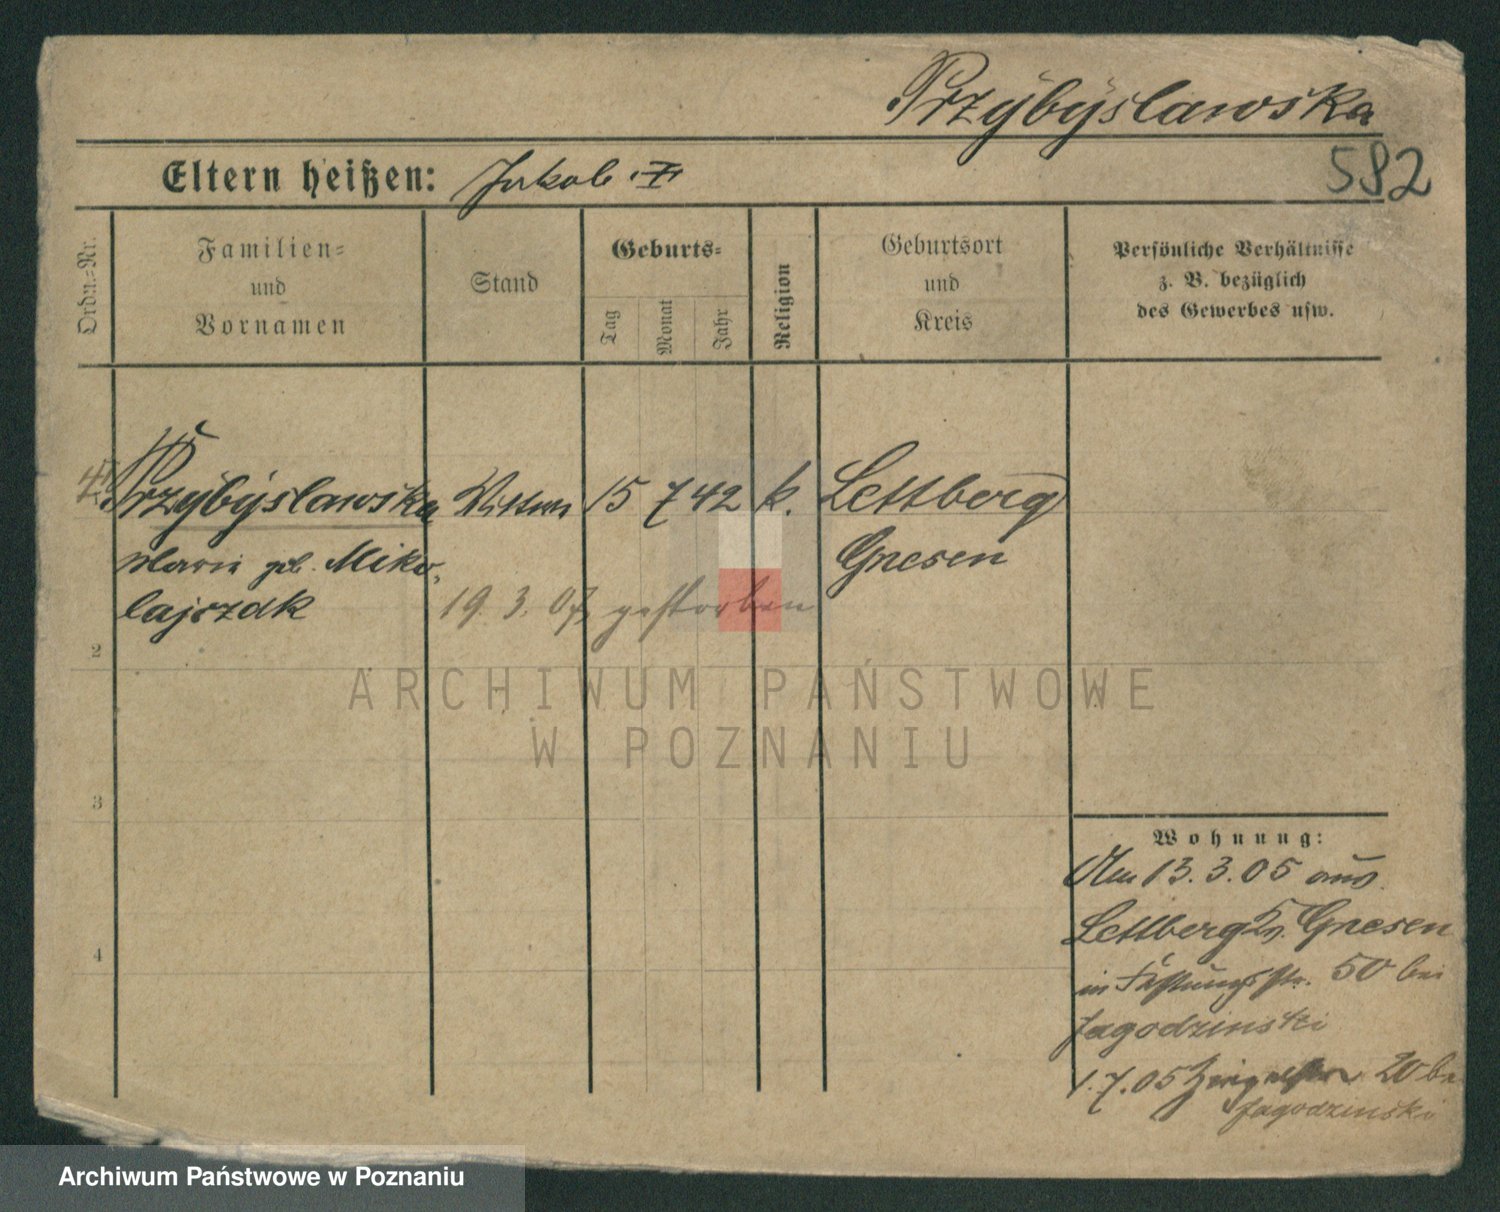 Przybyslawska
582
Eltern heißen: Jakob
Ordn.=Nr.
Familien=
und
Vornamen
Stand
Geburts=
Tag
Monat
Jahr
Religion
Geburtsort
und
Kreis
Persönliche Verhältnisse
z. B. bezüglich
des Gewerbes usw.
Przybyslawska Wittwe 15 7 42 k. Lettberg
Marie geb. Miko-
Gnesen
lajczak
19. 3. 07 gestorben
2
ARCHIWUM PAŃSTWOWE
W POZNANIU
3
Wohnung:
Am 13. 3. 05 aus
Lettberg Kr. Gnesen
4
in 50 bei
Jagodzinski
1. 7. 05 20 bei
Jagodzinski
Archiwum Państwowe w Poznaniu